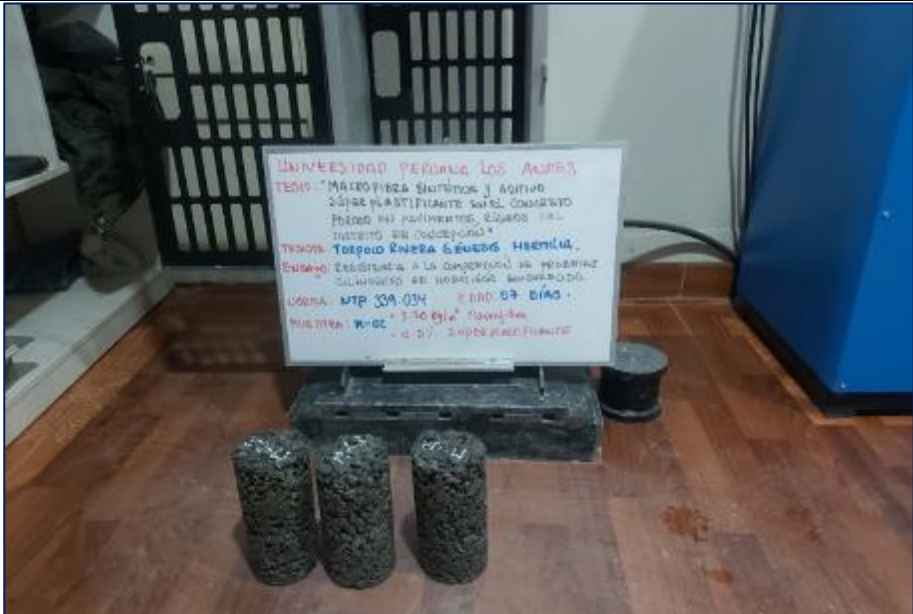 UNIVERSIDAD PERUANA LOS ANDES
TESIS: "MACROFIBRA SINTÉTICA Y ADITIVO
SÚPER PLASTIFICANTE EN EL CONCRETO
POROSO EN PAVIMENTOS RÍGIDOS DEL
DISTRITO DE CONCEPCIÓN"
TESISTA: TORPOCO RIVERA GÉNESIS
ENSAYO: RESISTENCIA A LA COMPRESIÓN DE PROBETAS
CILÍNDRICAS DE HORMIGÓN ENDURECIDO
NORMA: NTP 339.034 EDAD: 07 DÍAS.
MUESTRA: M-02 Macrofibra
SUPERPLASTIFICANTE